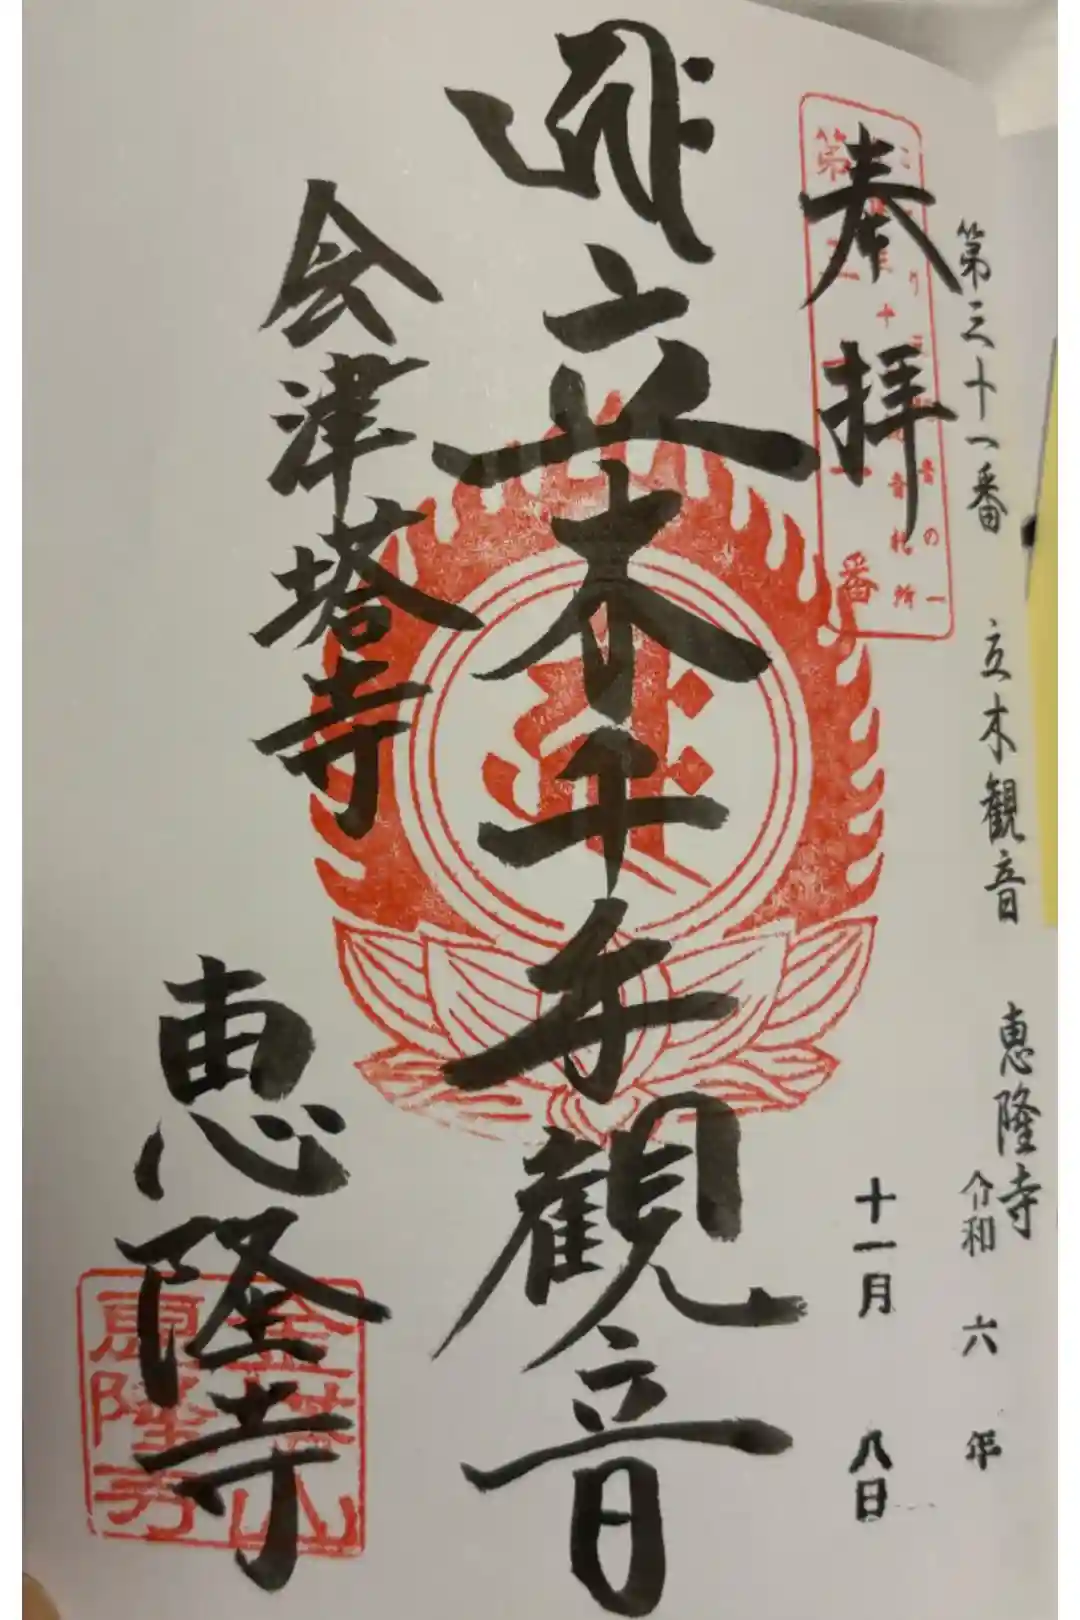 第三十一番 立木観音 恵隆寺
令和 六 年
十一月 八日
奉拝
第三十一番
立木千手観音
会津塔寺
恵隆寺
金塔山
恵隆寺